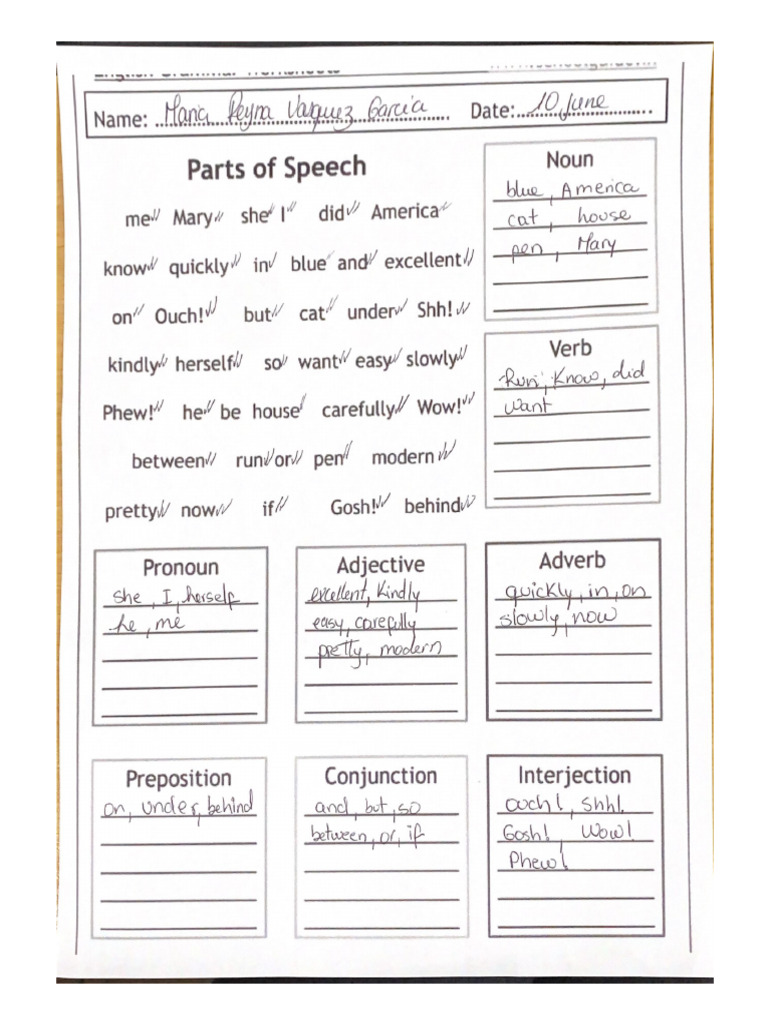 English Grammar Worksheets
Name: Maria Reyna Vazquez Garcia Date: 10 June
Parts of Speech
me Mary she I did America
know quickly in blue and excellent
on Ouch! but cat under Shh!
kindly herself so want easy slowly
Phew! he be house carefully Wow!
between run or pen modern
pretty now if Gosh! behind
Noun
blue, America
cat, house
pen, Mary
Verb
Run, Know, did
want
Pronoun
she, I, herself
he, me
Adjective
excellent, Kindly
easy, carefully
pretty, modern
Adverb
quickly, in, on
slowly, now
Preposition
on, under, behind
Conjunction
and, but, so
between, or, if
Interjection
ouch!, Shh!
Gosh!, Wow!
Phew!